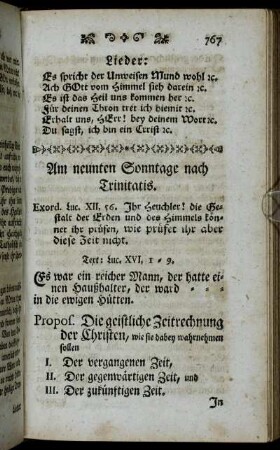 767
Lieder:
Es spricht der Unweisen Mund wohl ꝛc.
Ach GOtt vom Himmel sieh darein ꝛc.
Es ist das Heil uns kommen her ꝛc.
Für deinen Thron tret ich hiemit ꝛc.
Erhalt uns, HErr! bey deinem Wort ꝛc.
Du sagst, ich bin ein Christ ꝛc.
Am neunten Sonntage nach
Trinitatis.
Exord. Luc. XII, 56. Ihr Heuchler! die Ge-
stalt der Erden und des Himmels kön-
net ihr prüfen, wie prüfet ihr aber
diese Zeit nicht.
Text: Luc. XVI, 1 - 9.
Es war ein reicher Mann, der hatte ei-
nen Haußhalter, der ward - - -
in die ewigen Hütten.
Propos. Die geistliche Zeitrechnung
der Christen, wie sie dabey wahrnehmen
sollen
I. Der vergangenen Zeit,
II. Der gegenwärtigen Zeit, und
III. Der zukünftigen Zeit.
In